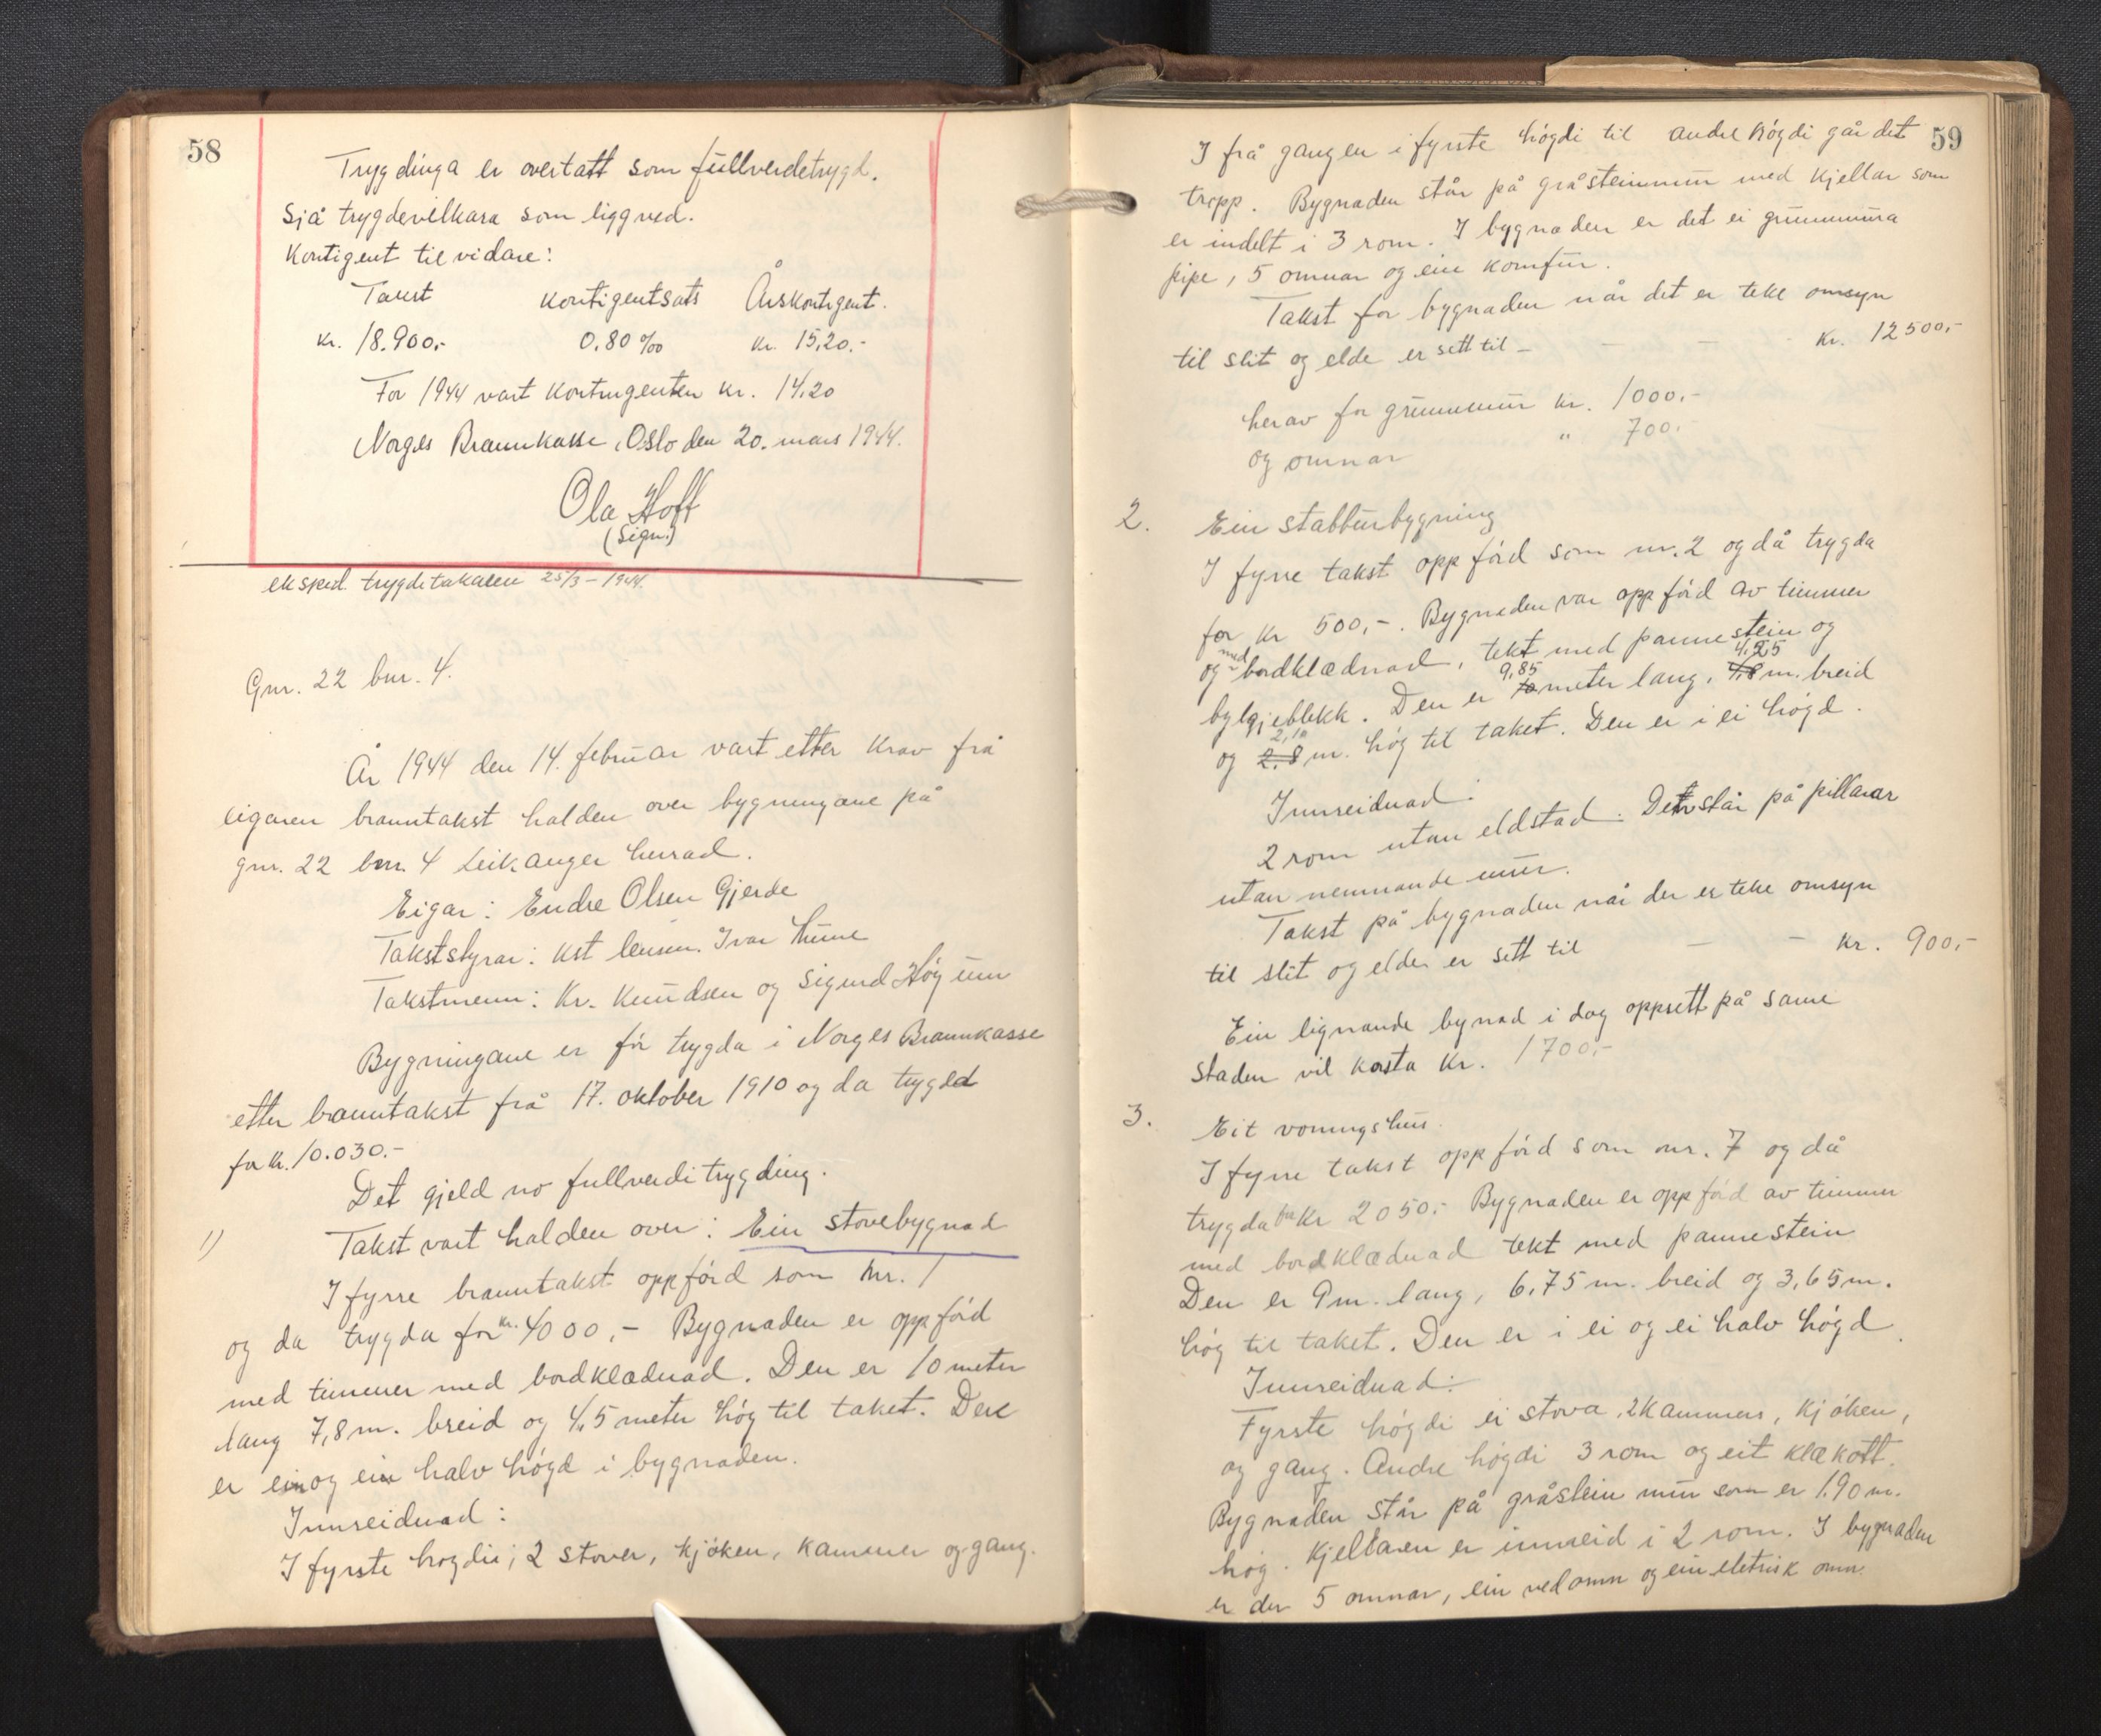 58
Trygdinga er overtatt som fullverdetrygd.
Sjå trygdevilkåra som ligg ved.
Kontigent til vidare:
Takst Kontigentsats Årskontigent.
Kr. 18.900,- 0,80 ‰ Kr. 15,20.-
For 1944 vart Kontingenten kr. 14,20
Norges Brannkasse, Oslo den 20. mars 1944.
Ola Hoff
(Sign.)
eksped. trygdetakaren 25/3 - 1944.
Gnr. 22 bnr. 4.
År 1944 den 14. februar vart etter Krav frå
eigaren branntakst halden over bygningane på
gnr. 22 bnr. 4 Leikanger herad.
Eigar: Endre Olsen Gjerde
Takststyrar: Kst lensm. Ivar Hume
Takstmenn: Kr. Knudsen og Sigurd Høgum
Bygningane er før trygda i Norges Brannkasse
etter branntakst frå 17. oktober 1910 og da trygdd
for kr. 10.030.-
Det gjeld no fullverdi trygding.
1) Takst vart halden over: Ein stovebygnad
I fyrre branntakst oppførd som Nr. 1
og da trygda for kr. 4000,- Bygnaden er oppførd
med timmer med bordklædnad. Den er 10 meter
lang 7,8 m. breid og 4,5 meter høg til taket. Dere
er ein og ein halv høgd i bygnaden.
Innreidnad:
I fyrste høgdi; 2 stover, kjøken, kammer og gang.
59
I frå gangen i fyrste høgdi til andre høgdi går det
tropp. Bygnaden står på gråsteinmur med Kjellar som
er indelt i 3 rom. I bygnaden er det ei grunnmura
pipe, 5 omnar og ein komfur.
Takst for bygnaden når det er teke omsyn
til slit og elde er sett til - - - Kr. 12500,-
herav for grunnmur kr. 1000.-
og omnar " 700.-
2. Ein stabburbygning
I fyrre takst oppførd som nr. 2 og då trygda
for kr 500,-. Bygnaden var oppførd av timmer
og med bordklædnad, tekt med pannestein og
bylgjeblekk. Den er 9,85 meter lang, 4,25 m. breid
og 2,10 m. høg til taket. Den er i ei høgd.
Innreidnad:
2 rom utan eldstad. Den står på pillarar
utan nemnande mur.
Takst på bygnaden når der er teke omsyn
til slit og elde er sett til - - Kr. 900,-
Ein lignande bynad i dag oppsett på same
staden vil kosta Kr. 1700,-
3. Eit voningshus.
I fyrre takst oppførd som nr. 7 og då
trygda for Kr 2050.- Bygnaden er oppførd av timmer
med bordklædnad tekt med pannestein
Den er 9 m. lang, 6,75 m. breid og 3,65 m.
høg til taket. Den er i ei og ei halv høgd.
Innreidnad:
Fyrste høgdi ei stova, 2 kammers, kjøken,
og gang. Andre høgdi 3 rom og eit klækott.
Bygnaden står på gråstein mur som er 1.90 m.
høg. Kjellaren er innreid i 2 rom. I bygnaden
er der 5 omnar, ein vedomn og ein eletrisk omn.